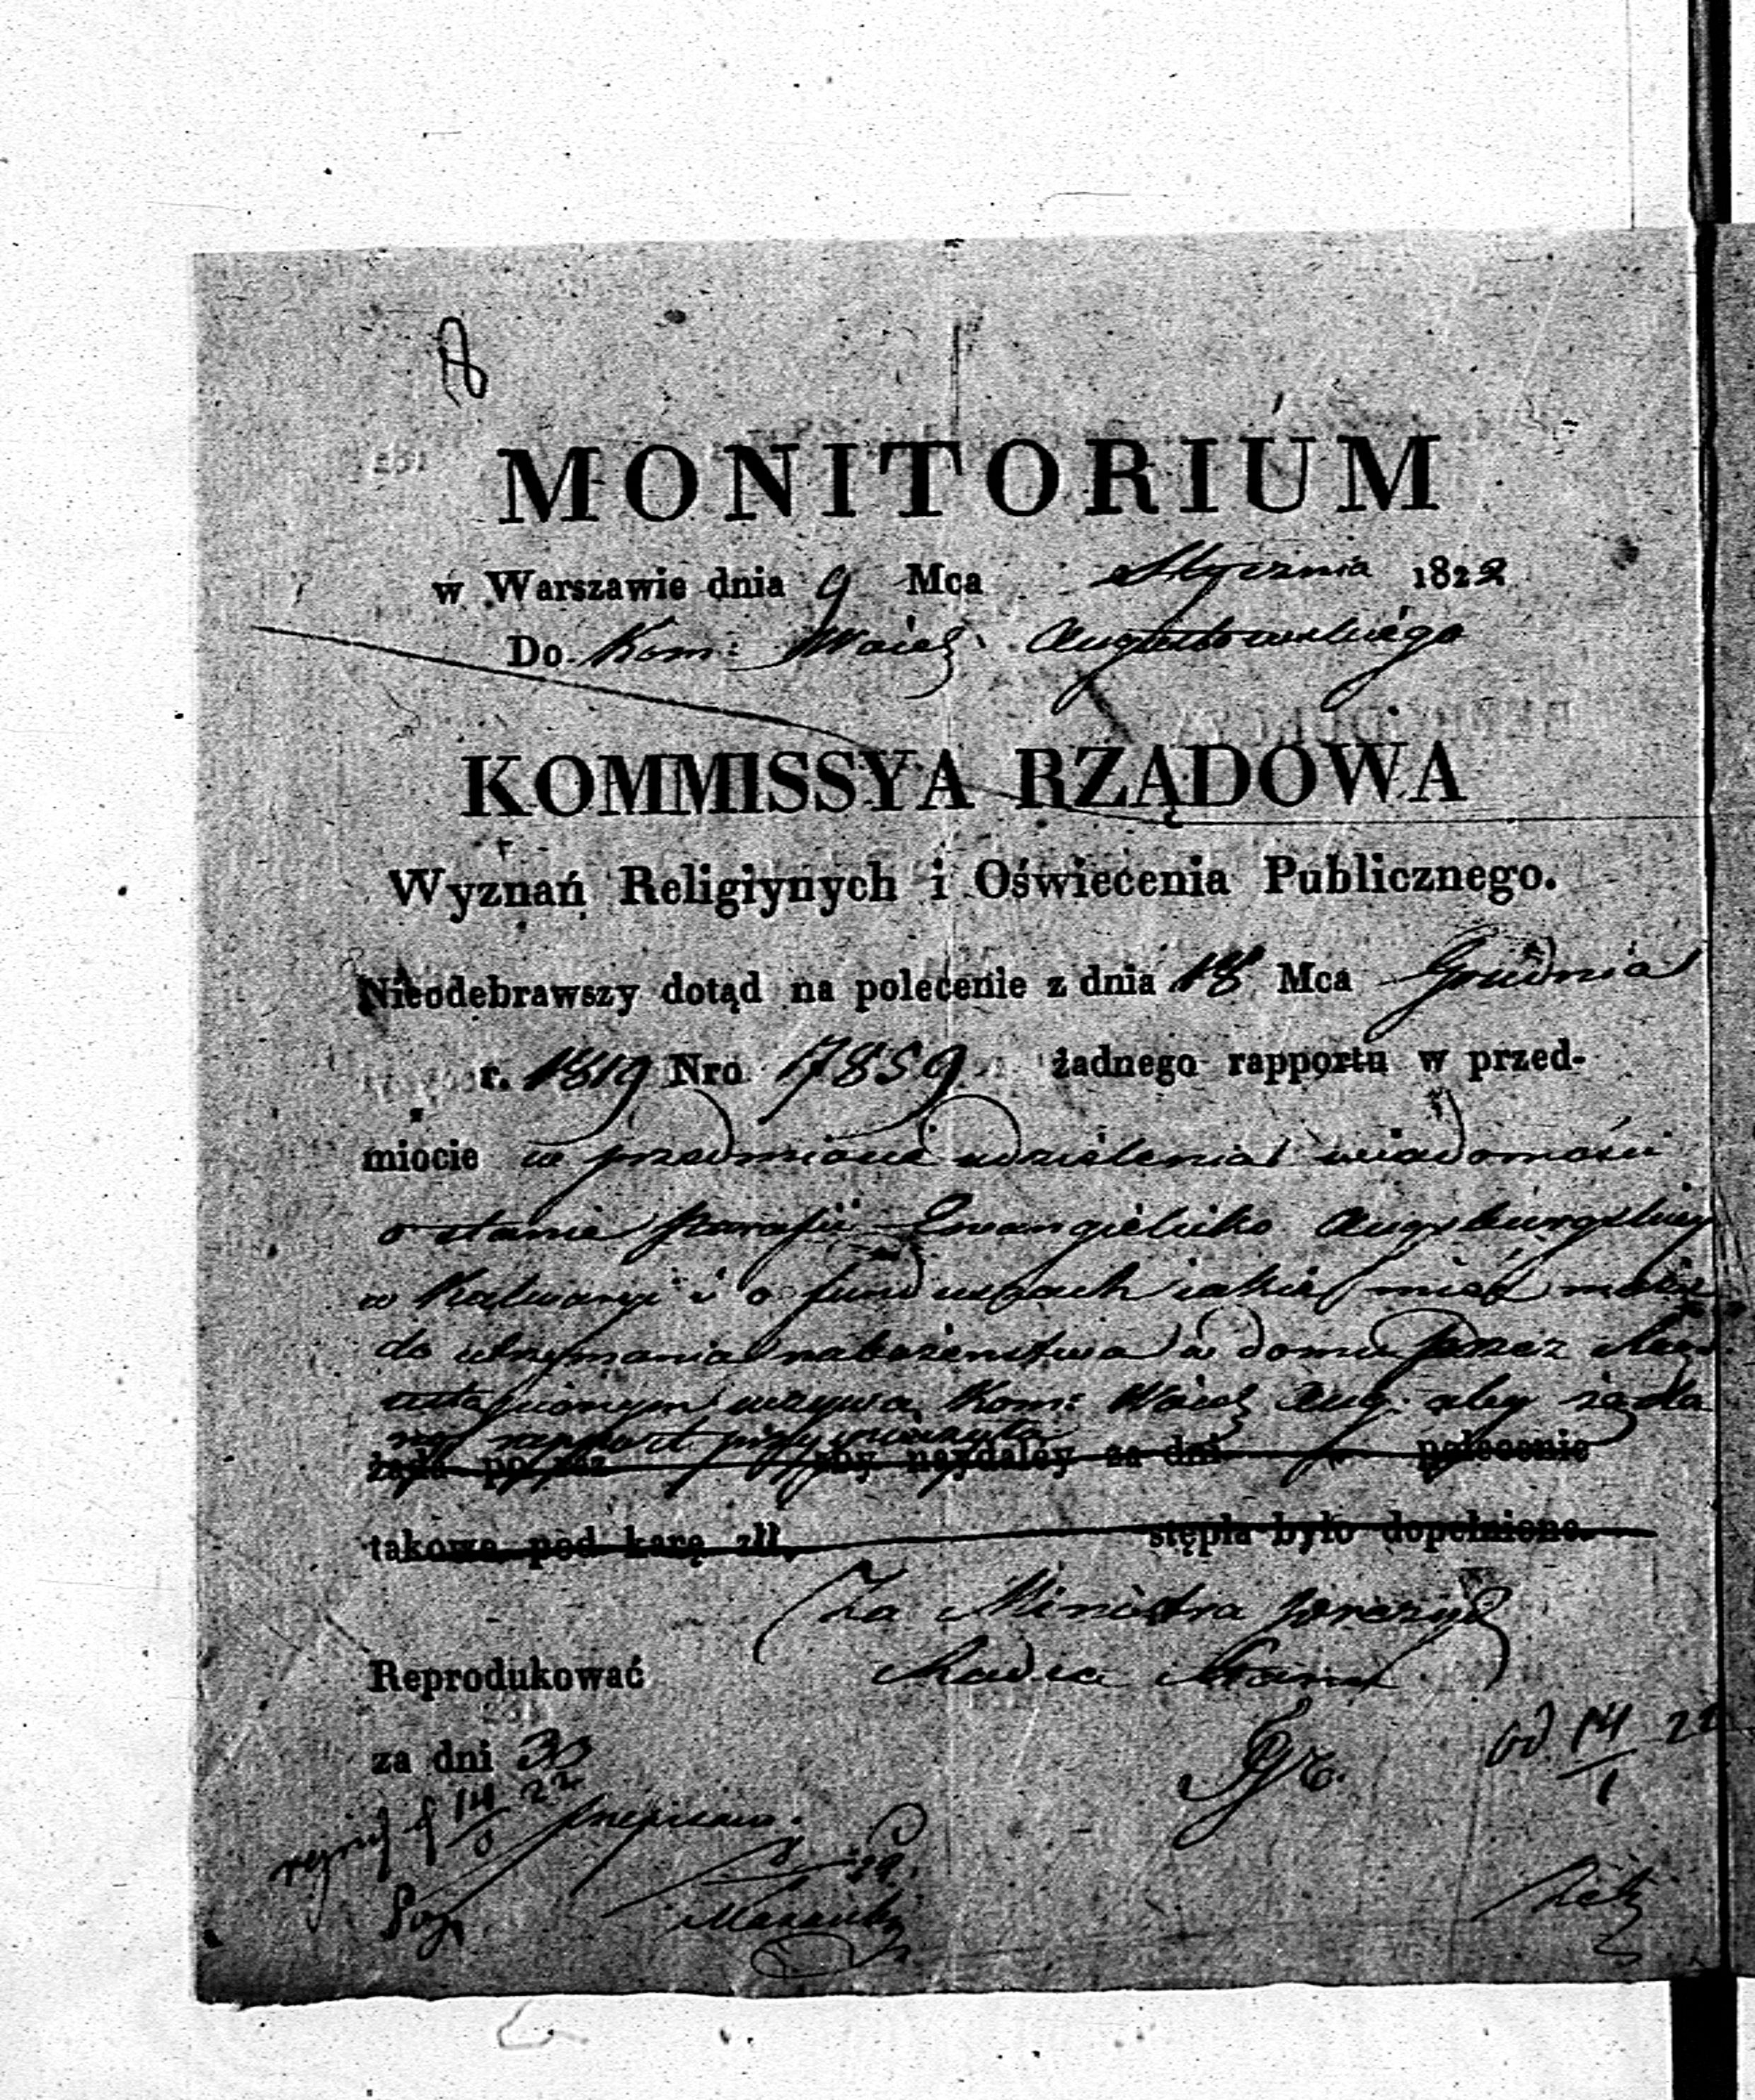 8
MONITORIUM
w Warszawie dnia 9 Mca Stycznia 1822
Do Kom: Woiew Augustowskiego
KOMMISSYA RZĄDOWA
Wyznań Religiynych i Oświecenia Publicznego.
Nieodebrawszy dotąd na polecenie z dnia 18 Mca Grudnia
r. 1819 Nro 17859 żadnego rapportu w przed-
miocie w przedmiocie udzielenia wiadomości
o stanie parafii Ewangielicko Augsburgskiey
w Kalwaryi i o funduszach iakie mieć może
do utrzymania nabożeństwa w domu przez
wzywa Kom: Woiew Aug. aby żąda
ny rapport przyspieszyła
żąda po raz aby naydaley za dni polecenie
takowe pod karą złł. stępla było dopełnione.
Za Ministra prezyd
Radca Stanu
Reprodukować
za dni 30
od 14/1 22
14 22